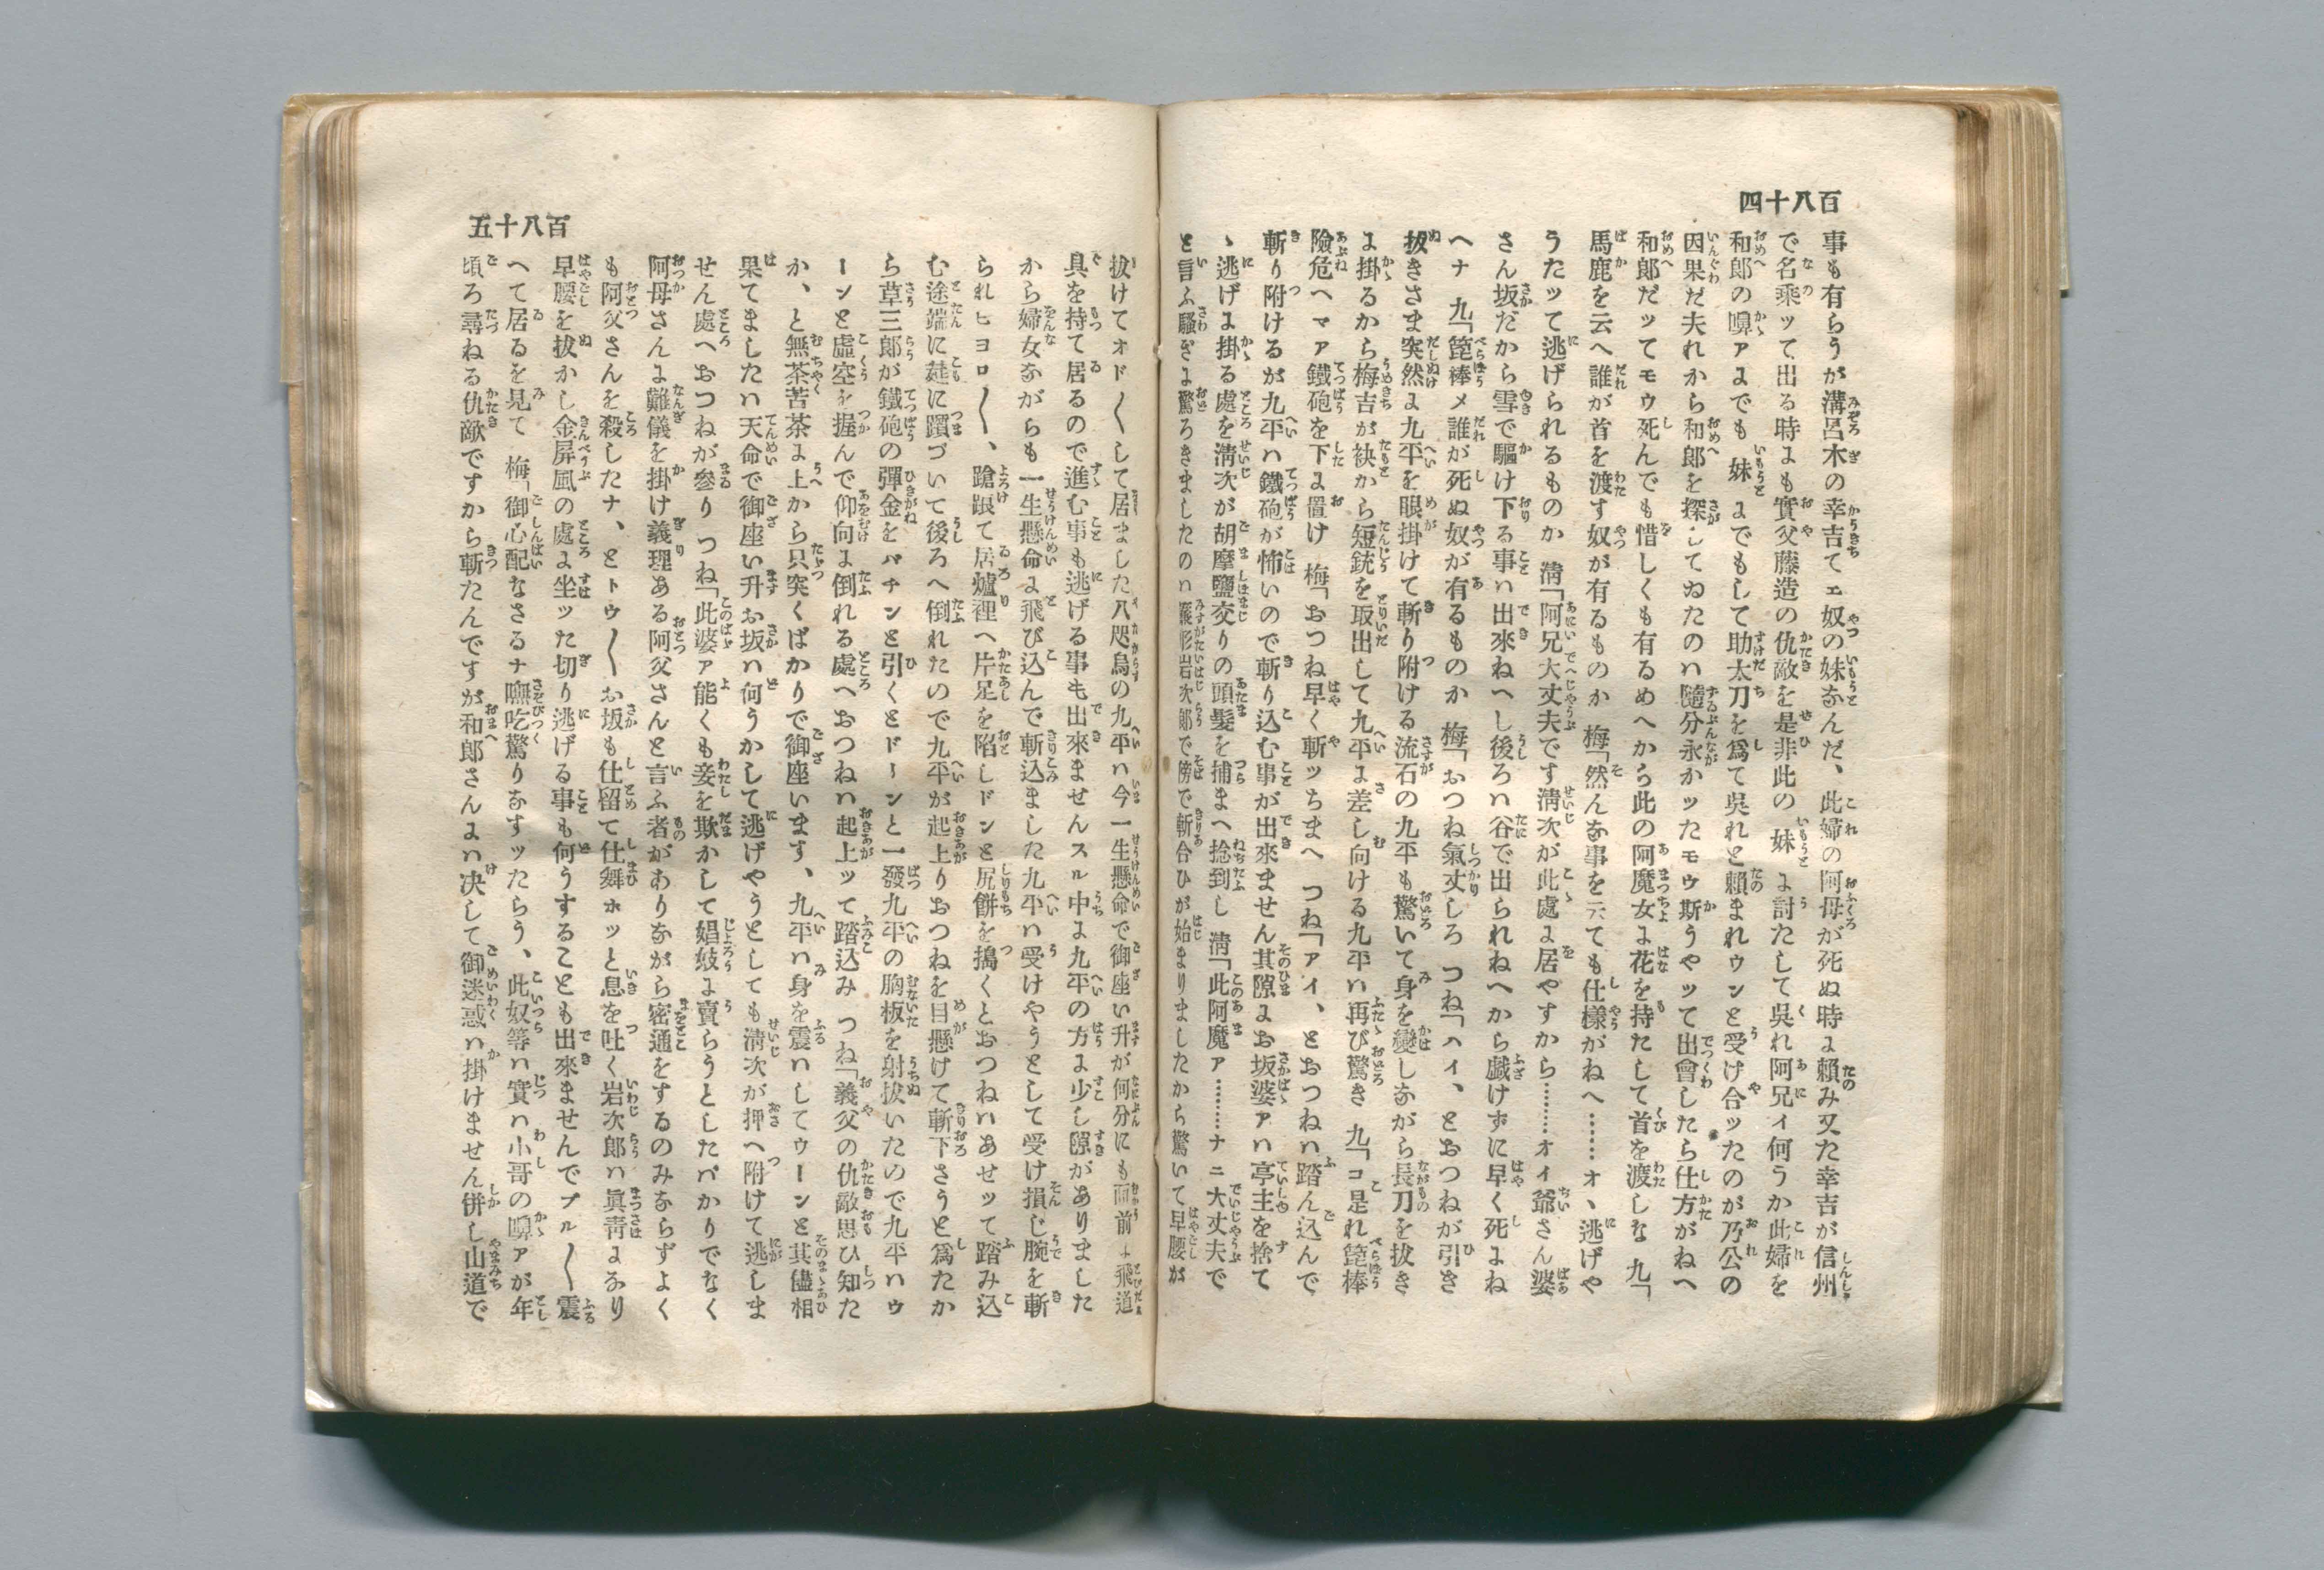 百八十四
事も有らうが溝呂木の幸吉てエ奴の妹なんだ、此婦の阿母が死ぬ時に賴み又た幸吉が信州
で名乘ッて出る時にも實父藤造の仇敵を是非此の妹に討たして吳れ阿兄イ何うか此婦を
和郎の嚊アにでも妹にでもして助太刀を爲て吳れと賴まれウンと受け合ッたのが乃公の
因果だ夫れから和郎を探してゐたのハ隨分永かッたモウ斯うやッて出會したら仕方がねへ
和郎だッてモウ死んでも惜しくも有るめへから此の阿魔女に花を持たして首を渡しな 九「
馬鹿を云へ誰が首を渡す奴が有るものか 梅「然んな事を云ても仕樣がねへ……オヽ逃げや
うたッて逃げられるものか 淸「阿兄大丈夫です淸次が此處に居やすから………オイ爺さん婆
さん坂だから雪で驅け下る事ハ出來ねへし後ろハ谷で出られねへから戯けずに早く死よね
ヘナ 九「箆棒メ誰が死ぬ奴が有るものか 梅「おつね氣丈しろ つね「ハイ、とおつねが引き
拔きさま突然に九平を眼掛けて斬り附ける流石の九平も驚いて身を變しながら長刀を拔き
に掛るから梅吉が袂から短銃を取出して九平に差し向ける九平ハ再び驚き 九「コ是れ箆棒
險危ヘマア鐵砲を下に置け 梅「おつね早く斬ッちまへ つね「アイ、とおつねハ踏ん込んで
斬り附けるが九平ハ鐵砲が怖いので斬り込む事が出來ません其隙にお坂婆アハ亭主を捨て
ヽ逃げに掛る處を淸次が胡摩鹽交りの頭髪を捕まへ捻到し 淸「此阿魔ア………ナニ大丈夫で
と言ふ騷ぎに驚ろきましたのハ 岩次郎で傍で斬合ひが始まりましたから驚いて早腰が
百八十五
拔けてオド〱して居ました八咫烏の九平ハ今一生懸命で御座い升が何分にも面前に飛道
具を持て居るので進む事も逃げる事も出來ませんスル中に九平の方に少し隙がありました
から婦女ながらも一生懸命に飛び込んで斬込ました九平ハ受けやうとして受け損じ腕を斬
られヒヨロ〱、蹌踉て居爐裡へ片足を陷しドンと尻餅を搗くとおつねハあせッて踏み込
む途端に莚に躓づいて後ろへ倒れたので九平が起上りおつねを目懸けて斬下さうと爲たか
ら草三郎が鐵砲の彈金をパチンと引くとドーンと一發九平の胸板を射拔いたので九平ハウ
ーンと虛空を握んで仰向に倒れる處へおつねハ起上ッて踏込み つね「義父の仇敵思ひ知た
か、と無茶苦茶に上から只突くばかりで御座います、九平ハ身を震ハしてウーンと其儘相
果てましたハ天命で御座い升お坂ハ何うかして逃げやうとしても淸次が押へ附けて逃しま
せん處へおつねが參り つね「此婆ア能くも妾を欺かして娼妓に賣らうとしたバかりでなく
阿母さんに難儀を掛け義理ある阿父さんと言ふ者がありながら密通をするのみならずよく
も阿父さんを殺したナ、とトウ〱お坂も仕留て仕舞ホッと息を吐く岩次郎ハ眞靑になり
早腰を拔かし金屏風の處に坐ッた切り逃げる事も何うすることも出來ませんでブル〱震
へて居るを見て 梅「御心配なさるナ嘸吃驚りなすッたらう、此奴等ハ實ハ小哥の嚊アが年
頃ろ尋ねる仇敵ですから斬たんですが和郎さんにハ决して御迷惑ハ掛けません併し山道で